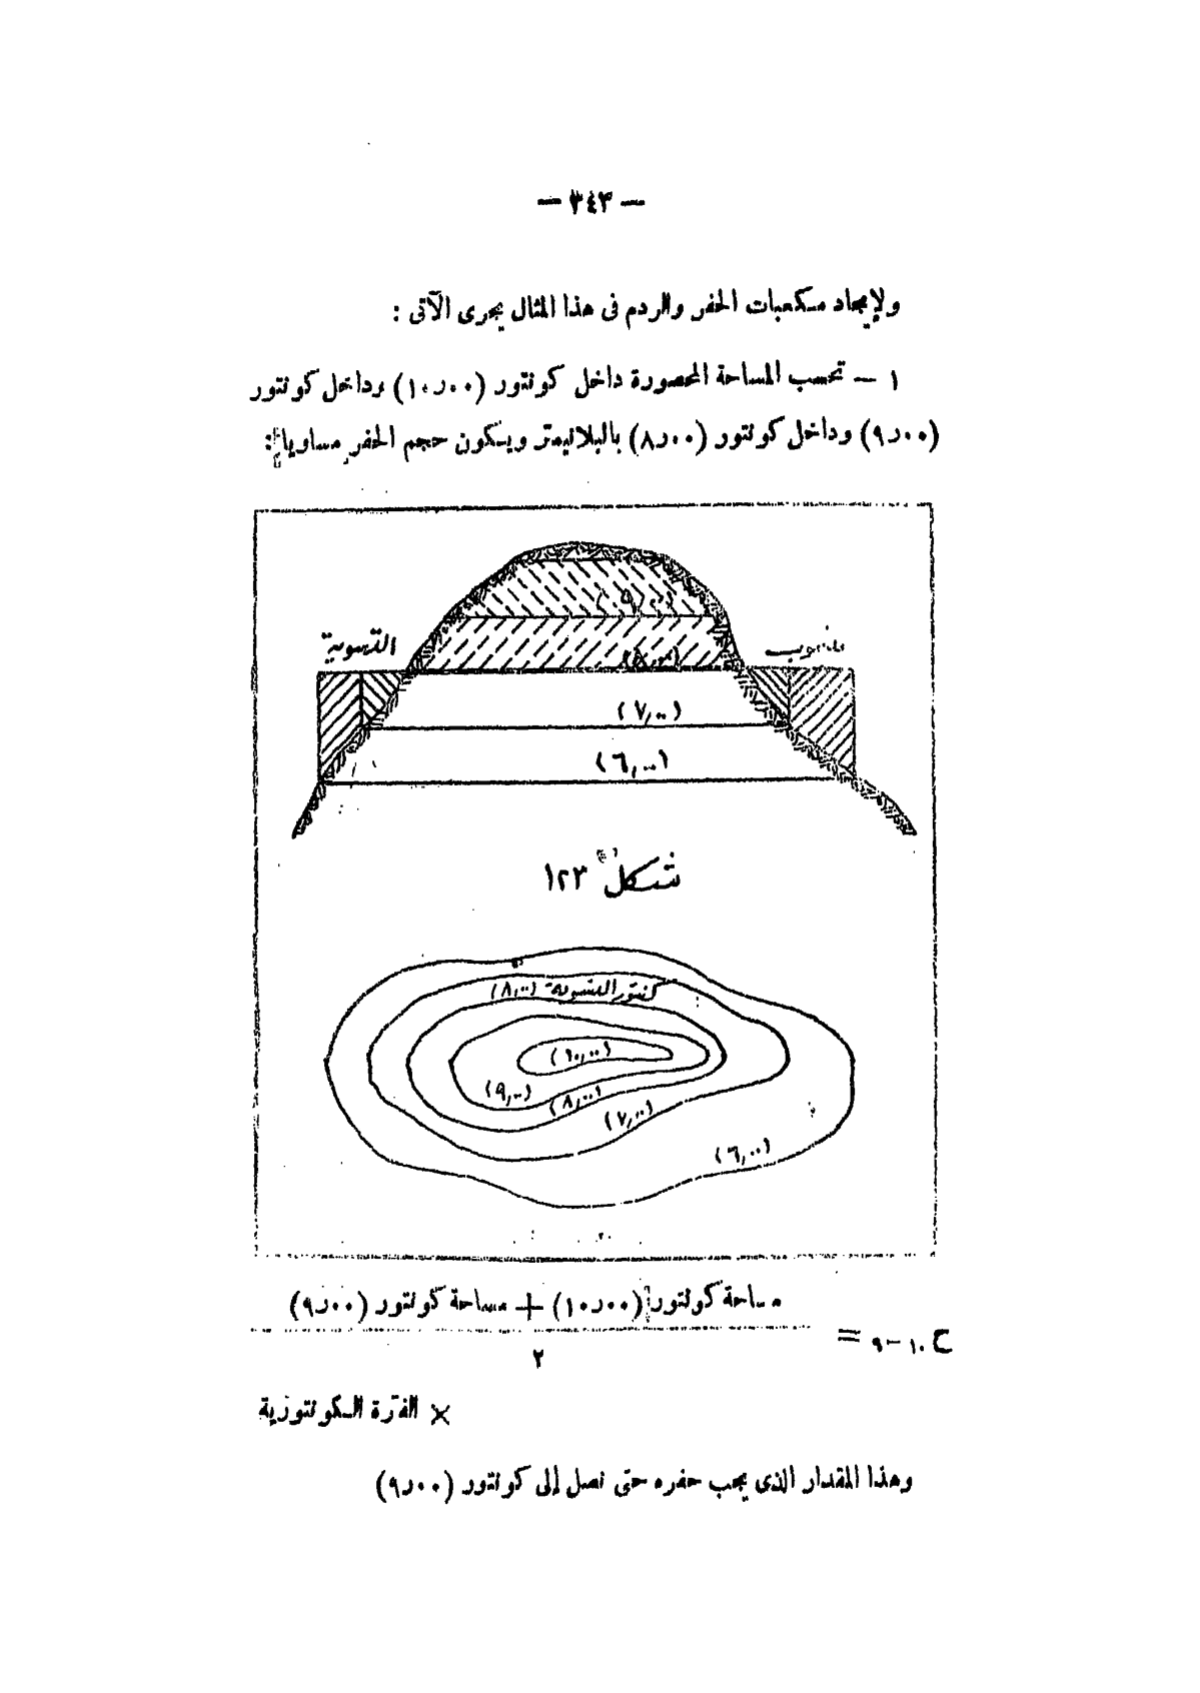 — ٣٤٣ —
ولإيجاد مكعبات الحفر والردم فى هذا المثال يجرى الآتى :
١ — تحسب المساحة المحصورة داخل كونتور (١٠٫٠٠) وداخل كونتور
(٩٫٠٠) وداخل كونتور (٨٫٠٠) بالبلانيمتر ويكون حجم الحفر مساويا :
(٩٫٠٠)
منسوب
التسوية
(٨٫٠٠)
(٧٫٠٠)
(٦٫٠٠)
شكل ١٢٣
كنتور التسوية (٨٫٠٠)
(١٠٫٠٠)
(٩٫٠٠)
(٨٫٠٠)
(٧٫٠٠)
(٦٫٠٠)
مساحة كونتور (١٠٫٠٠) + مساحة كونتور (٩٫٠٠)
ح ١٠ – ٩ =
٢
× الفترة الكونتورية
وهذا المقدار الذى يجب حفره حتى نصل إلى كونتور (٩٫٠٠)